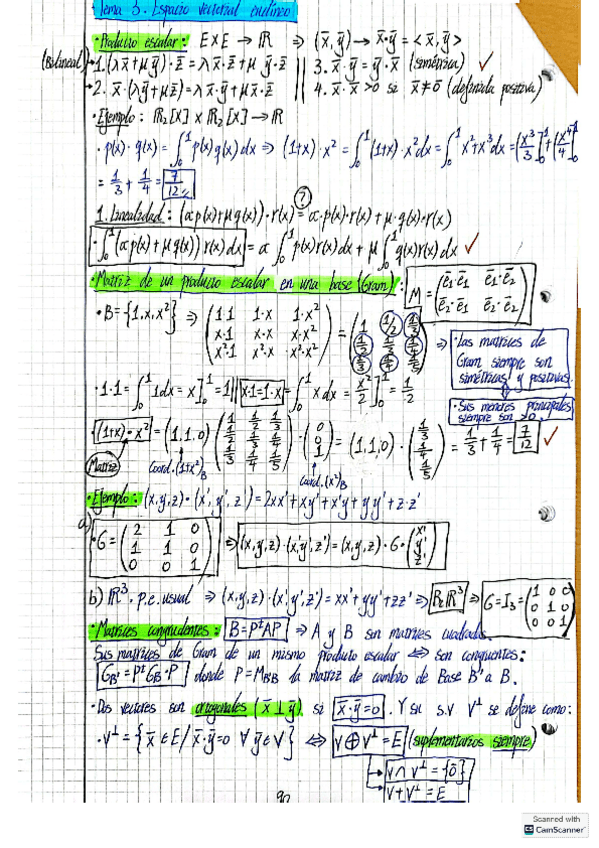 Tema 3. Espacio vectorial euclídeo
• Producto escalar: E×E → ℝ ⇒ (x̄, ȳ) → x̄·ȳ = <x̄, ȳ>
(Bilineal) 1. (λx̄+μȳ)·z̄ = λx̄·z̄+μ ȳ·z̄ || 3. x̄·ȳ = ȳ·x̄ (simétrica) ✓
2. x̄·(λȳ+μz̄) = λx̄·ȳ+μx̄·z̄ || 4. x̄·x̄ >0 si x̄≠ō (definida positiva)
• Ejemplo: ℝ₂[X] × ℝ₂[X] → ℝ
• p(x)·q(x) = ∫₀¹ p(x)q(x)dx ⇒ (1+x)·x² = ∫₀¹ (1+x)·x²dx = ∫₀¹ x²+x³dx = [x³/3]₀¹ + [x⁴/4]₀¹
= 1/3 + 1/4 = 7/12
1. Linealidad: (αp(x)+μq(x))·r(x) =(?) α·p(x)·r(x)+μ·q(x)·r(x)
• ∫₀¹ (αp(x)+μq(x)) r(x)dx = α ∫₀¹ p(x)r(x)dx + μ ∫₀¹ q(x)r(x)dx ✓
• Matriz de un producto escalar en una base (Gram): M = (ē₁·ē₁ ē₁·ē₂ / ē₂·ē₁ ē₂·ē₂)
• B={1,x,x²} ⇒ (1·1 1·x 1·x² / x·1 x·x x·x² / x²·1 x²·x x²·x²) = (1 1/2 1/3 / 1/2 1/3 1/4 / 1/3 1/4 1/5) ⇒ • Las matrices de
Gram siempre son
simétricas y positivas.
• 1·1 = ∫₀¹ 1dx = x]₀¹ = 1 || x·1=1·x = ∫₀¹ x dx = x²/2]₀¹ = 1/2
• Sus menores principales
siempre son >0.
• (1+x)·x² = (1,1,0) (1 1/2 1/3 / 1/2 1/3 1/4 / 1/3 1/4 1/5) · (0 / 0 / 1) = (1,1,0) · (1/3 / 1/4 / 1/5) = 1/3 + 1/4 = 7/12 ✓
Matriz Coord.(1+x²)B Coord.(x²)B
• Ejemplo: (x,y,z)·(x',y',z') = 2xx'+xy'+x'y+yy'+z·z'
a) • G = (2 1 0 / 1 1 0 / 0 0 1) ⇒ (x,y,z)·(x',y',z') = (x,y,z)·G·(x' / y' / z')
b) ℝ³, p.e. usual ⇒ (x,y,z)·(x',y',z') = xx'+yy'+zz' ⇒ ⇒ G=I₃ = (1 0 0 / 0 1 0 / 0 0 1)
• Matrices congruentes: B=PᵗAP ⇒ A y B son matrices cuadradas.
Sus matrices de Gram de un mismo producto escalar ⇔ son congruentes:
GB' = PᵗGB·P donde P=MB'B la matriz de cambio de Base B' a B.
• Dos vectores son ortogonales (x̄ ⊥ ȳ) si x̄·ȳ=0. Y su s.v V⊥ se define como:
• V⊥ = {x̄ ∈ E / x̄·ȳ=0 ∀ ȳ ∈ V} ⇔ V⊕V⊥=E (suplementarios siempre)
V∩V⊥={ō}
V+V⊥=E
Scanned with
CS CamScanner